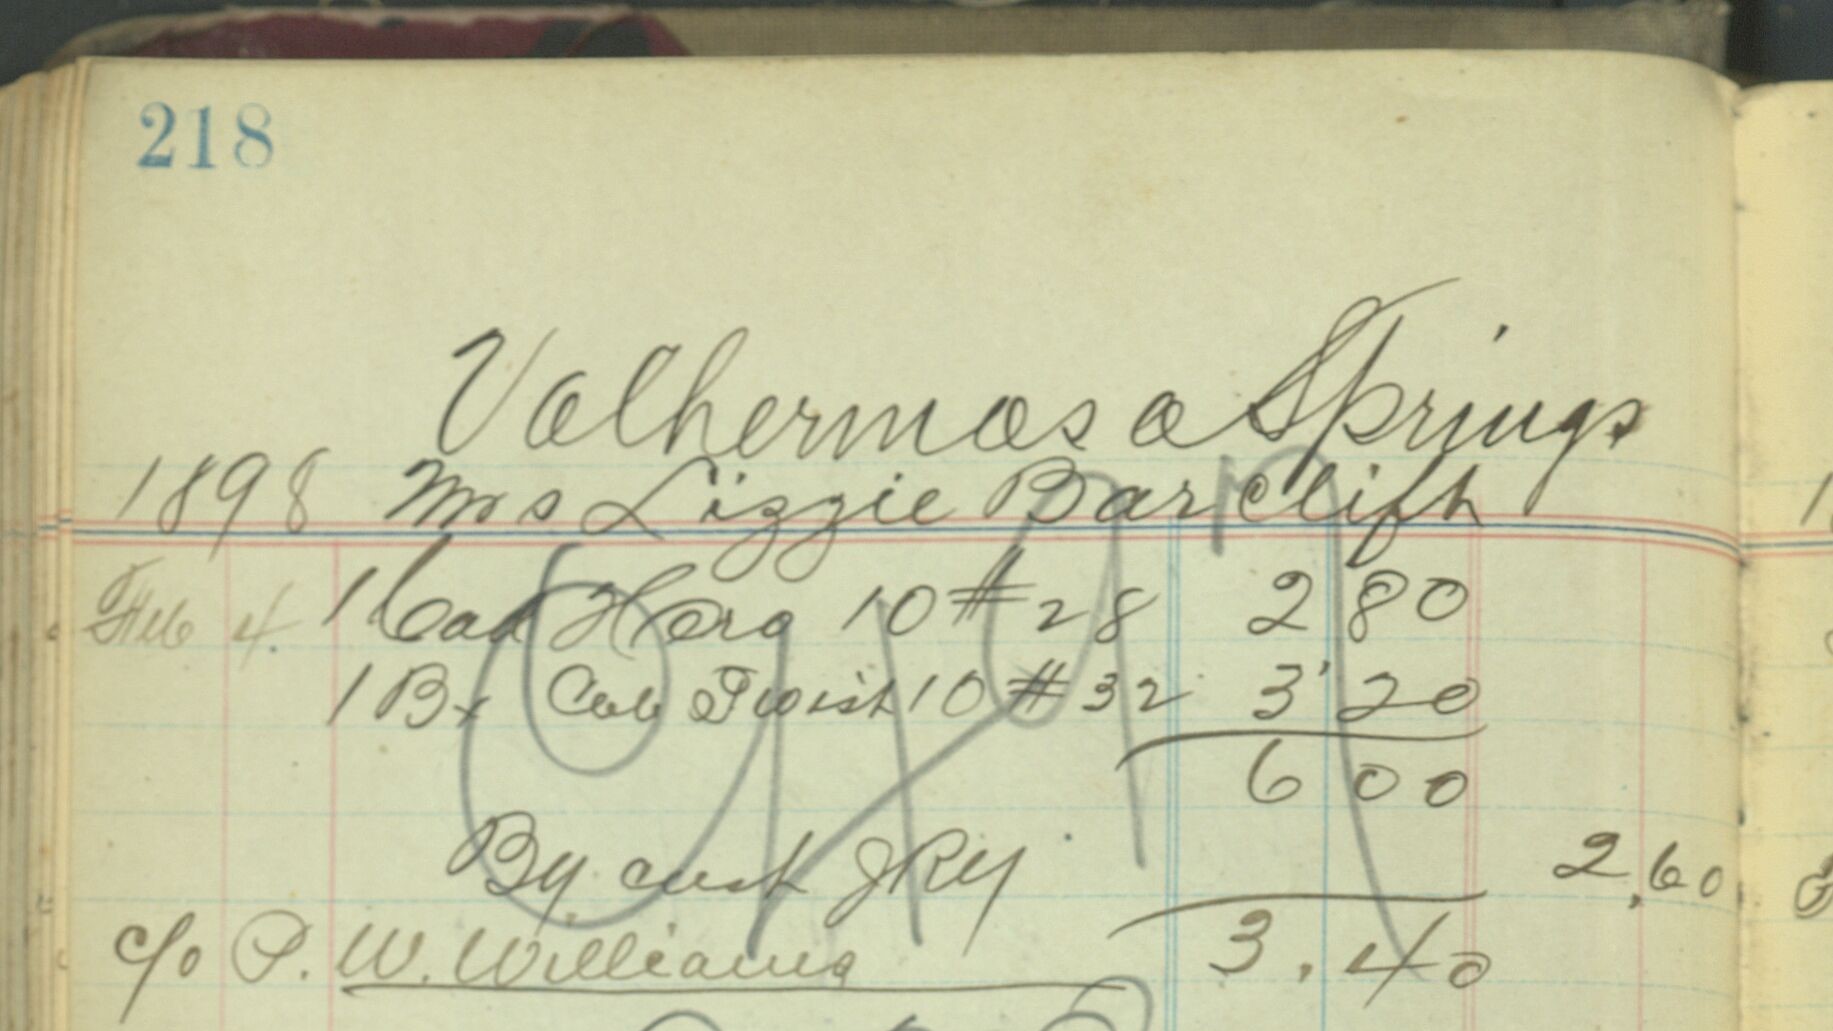 218
Valhermoso Springs
1898 Mrs Lizzie Barclift
Feb 4 1 Cad 10 # 28 2 80
1 Bx Twist 10 # 32 3 20
6 00
By cash JRY 2.60
c/o P. W. Williams 3.40